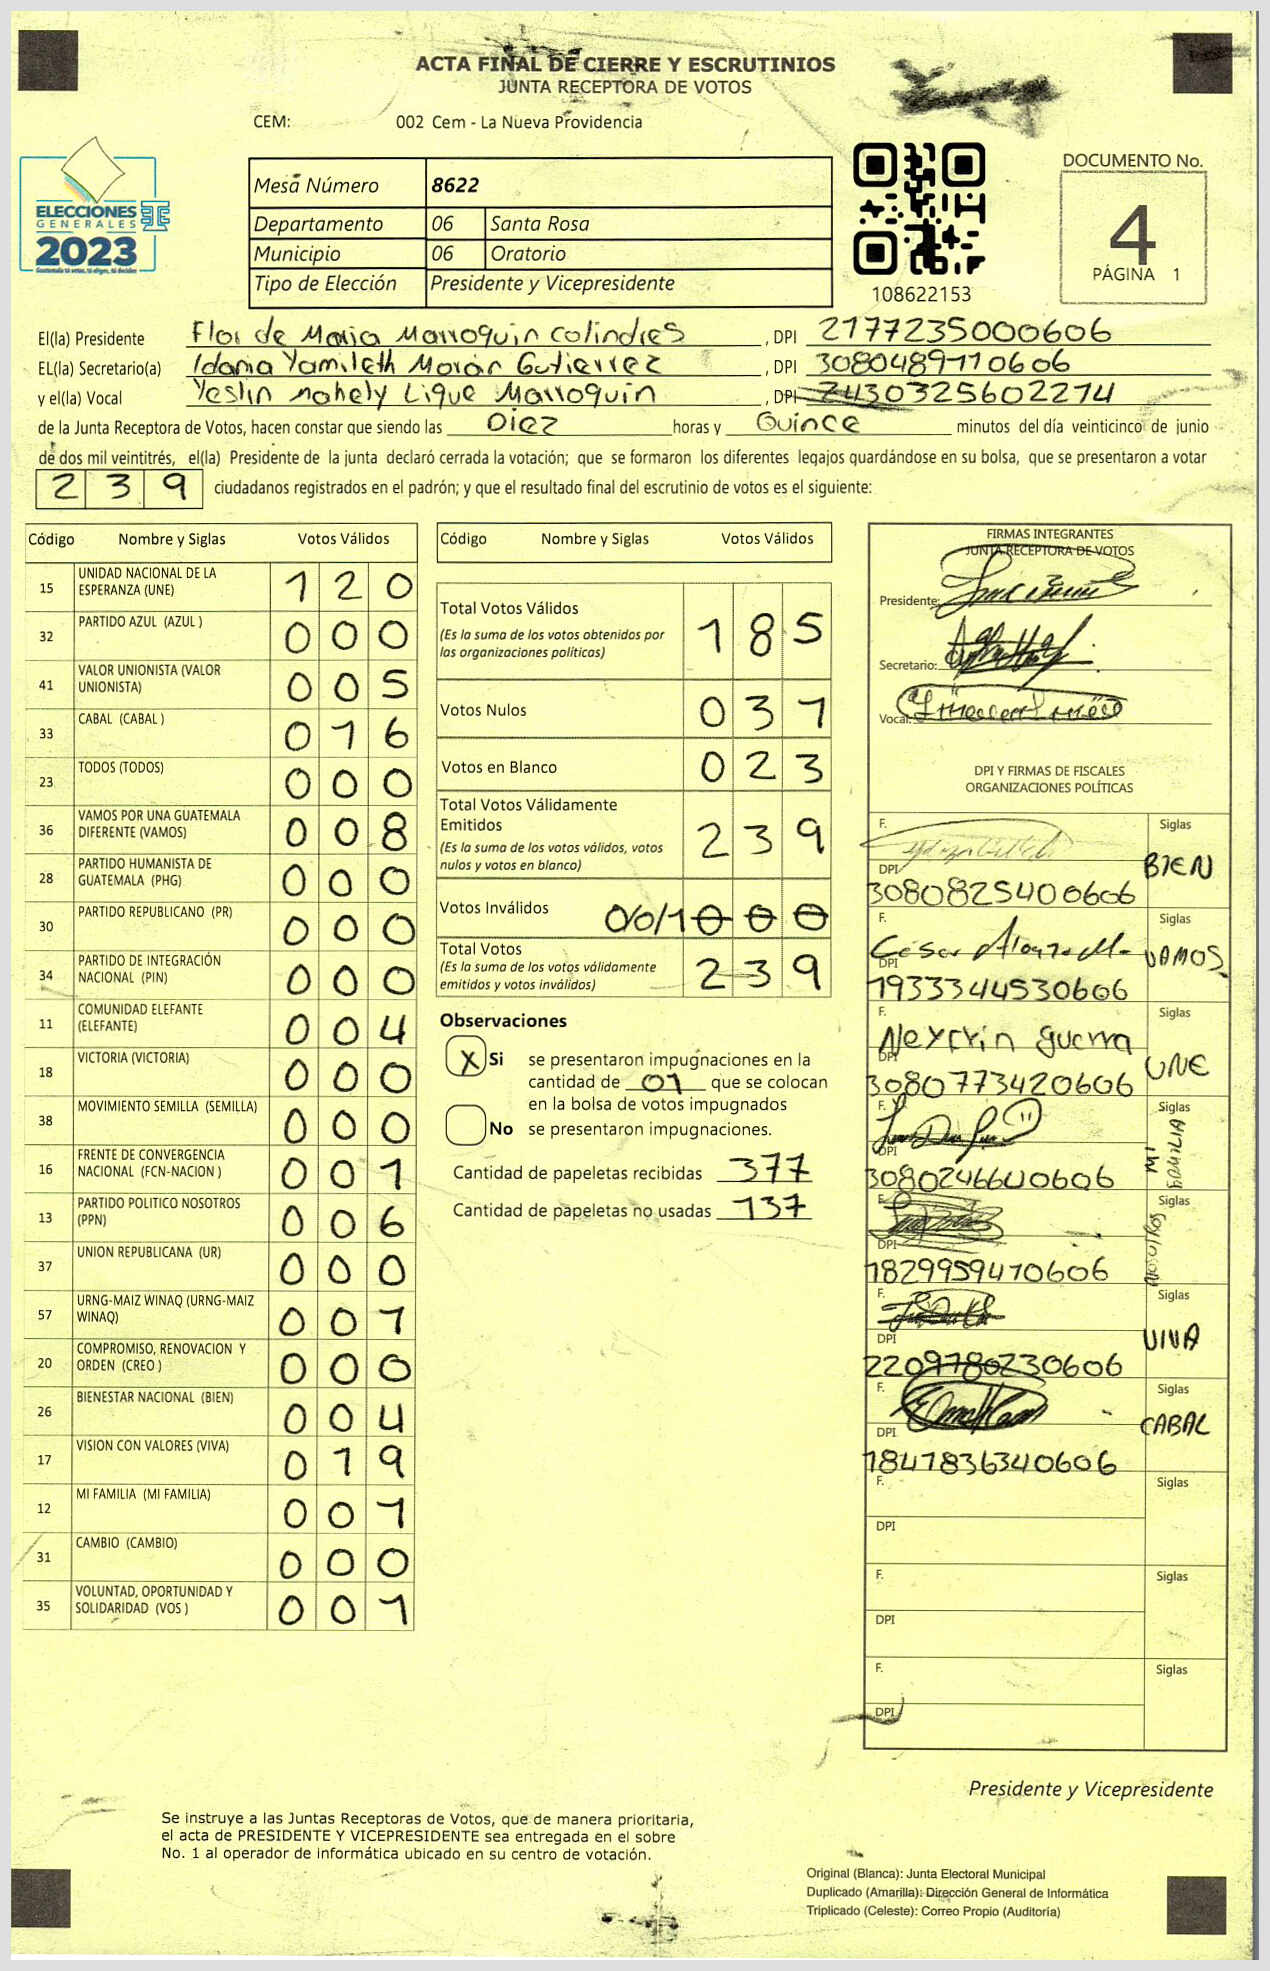 ACTA FINAL DE CIERRE Y ESCRUTINIOS
JUNTA RECEPTORA DE VOTOS
CEM: 002 Cem - La Nueva Providencia
ELECCIONES
GENERALES
2023
Guatemala tú votas, tú eliges, tú decides
Mesa Número 8622
Departamento 06 Santa Rosa
Municipio 06 Oratorio
Tipo de Elección Presidente y Vicepresidente
108622153
DOCUMENTO No.
4
PÁGINA 1
El(la) Presidente Flor de Maria Marroquin Colindres , DPI 2177235000606
EL(la) Secretario(a) Idania Yamileth Morán Gutierrez , DPI 3080489110606
y el(la) Vocal Yeslin Mahely Lique Marroquin , DPI 2430325602214
de la Junta Receptora de Votos, hacen constar que siendo las Diez horas y Quince minutos del día veinticinco de junio
de dos mil veintitrés, el(la) Presidente de la junta declaró cerrada la votación; que se formaron los diferentes legajos guardándose en su bolsa, que se presentaron a votar
239 ciudadanos registrados en el padrón; y que el resultado final del escrutinio de votos es el siguiente:
Código Nombre y Siglas Votos Válidos
15 UNIDAD NACIONAL DE LA ESPERANZA (UNE) 120
32 PARTIDO AZUL (AZUL ) 000
41 VALOR UNIONISTA (VALOR UNIONISTA) 005
33 CABAL (CABAL ) 016
23 TODOS (TODOS) 000
36 VAMOS POR UNA GUATEMALA DIFERENTE (VAMOS) 008
28 PARTIDO HUMANISTA DE GUATEMALA (PHG) 000
30 PARTIDO REPUBLICANO (PR) 000
34 PARTIDO DE INTEGRACIÓN NACIONAL (PIN) 000
11 COMUNIDAD ELEFANTE (ELEFANTE) 004
18 VICTORIA (VICTORIA) 000
38 MOVIMIENTO SEMILLA (SEMILLA) 000
16 FRENTE DE CONVERGENCIA NACIONAL (FCN-NACION ) 001
13 PARTIDO POLITICO NOSOTROS (PPN) 006
37 UNION REPUBLICANA (UR) 000
57 URNG-MAIZ WINAQ (URNG-MAIZ WINAQ) 001
20 COMPROMISO, RENOVACION Y ORDEN (CREO ) 000
26 BIENESTAR NACIONAL (BIEN) 004
17 VISION CON VALORES (VIVA) 019
12 MI FAMILIA (MI FAMILIA) 001
31 CAMBIO (CAMBIO) 000
35 VOLUNTAD, OPORTUNIDAD Y SOLIDARIDAD (VOS ) 001
Código Nombre y Siglas Votos Válidos
Total Votos Válidos 185
(Es la suma de los votos obtenidos por
las organizaciones políticas)
Votos Nulos 031
Votos en Blanco 023
Total Votos Válidamente
Emitidos 239
(Es la suma de los votos válidos, votos
nulos y votos en blanco)
Votos Inválidos 0/0/1 000
Total Votos 239
(Es la suma de los votos válidamente
emitidos y votos inválidos)
Observaciones
X Si se presentaron impugnaciones en la
cantidad de 01 que se colocan
en la bolsa de votos impugnados
No se presentaron impugnaciones.
Cantidad de papeletas recibidas 377
Cantidad de papeletas no usadas 137
FIRMAS INTEGRANTES
JUNTA RECEPTORA DE VOTOS
Presidente:
Secretario:
Vocal:
DPI Y FIRMAS DE FISCALES
ORGANIZACIONES POLÍTICAS
F. Siglas
DPI 3080825400606 BIEN
F. César Siglas
DPI 1933344530606 VAMOS
F. Neyrin Guerra Siglas
DPI 3080773420606 UNE
F. Siglas
DPI 3080246640606 Mi Familia
F. Siglas
DPI 1829959410606 Nosotros
F. Siglas
DPI 2209780230606 VIVA
F. Siglas
DPI 1841836340606 CABAL
F. Siglas
DPI
F. Siglas
DPI
F. Siglas
DPI
Presidente y Vicepresidente
Se instruye a las Juntas Receptoras de Votos, que de manera prioritaria,
el acta de PRESIDENTE Y VICEPRESIDENTE sea entregada en el sobre
No. 1 al operador de informática ubicado en su centro de votación.
Original (Blanca): Junta Electoral Municipal
Duplicado (Amarilla): Dirección General de Informática
Triplicado (Celeste): Correo Propio (Auditoría)